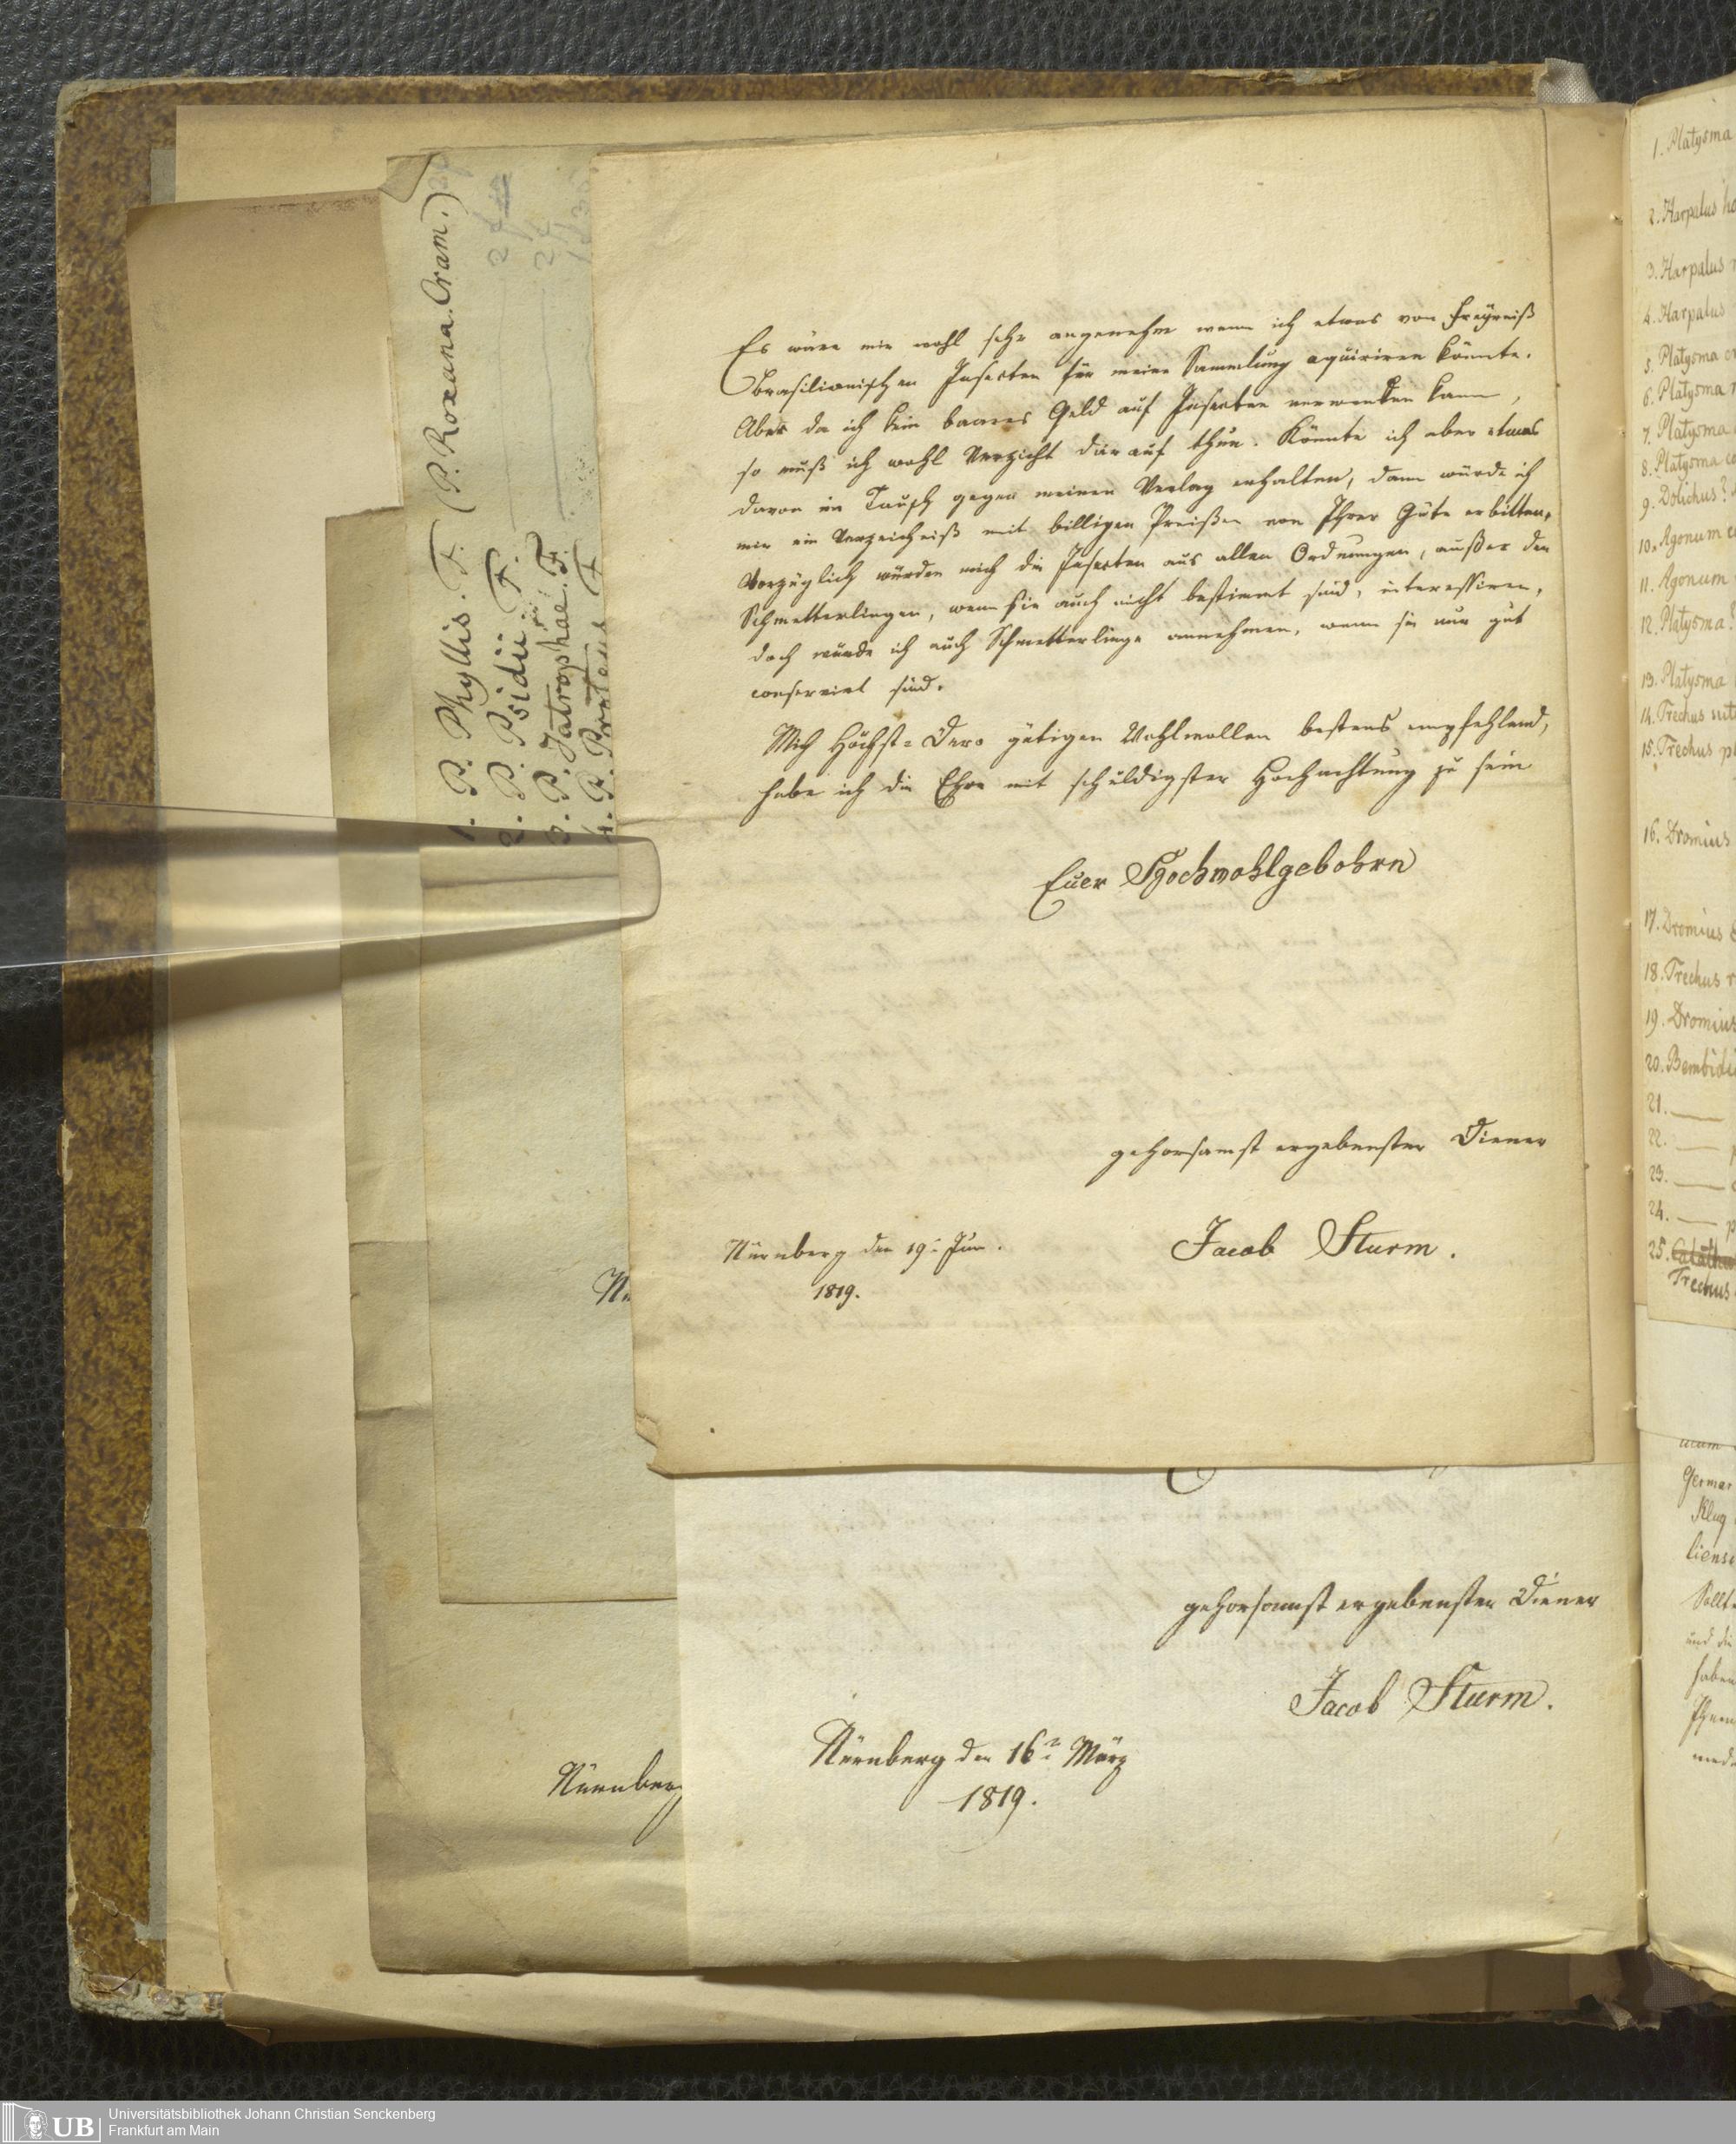 Es wäre mir wohl sehr angenehm wenn ich etwas von Freyreiß
brasilianischen Insecten für meine Sammlung aquiriren könnte.
Aber da ich kein baares Geld auf Insecten verwenden kann,
so muß ich wohl Verzicht darauf thun. Könnte ich aber etwas
davon im Tausch gegen meinen Verlag erhalten, dann würde ich
mir ein Verzeichniß mit billigen Preißen von Ihrer Güte erbitten.
Vorzüglich würden mich die Insecten aus allen Ordnungen, außer den
Schmetterlingen, wenn sie auch nicht bestimmt sind, interessiren,
doch würde ich auch Schmetterlinge annehmen, wenn sie nur gut
conservirt sind.
Mich Höchst-Dero gütigen Wohlwollen bestens empfehlend,
habe ich die Ehre mit schuldigster Hochachtung zu sein
Euer Hochwohlgebohrn
gehorsamst ergebenster Diener
Jacob Sturm.
Nürnberg den 19. Jun.
1819.
gehorsamst ergebenster Diener
Jacob Sturm.
Nürnberg den 16. März
1819.
Nürnberg
1. P. Phyllis. F. (P. Roxana. Cram.)
2. P. Psidii. F.
3. P. Jatrophae. F.
4. P. F
1. Platysma
2. Harpalus
3. Harpalus
4. Harpalus
5. Platysma
6. Platysma
7. Platysma
8. Platysma
9. Dolichus?
10. Agonum
11. Agonum
12. Platysma?
13. Platysma
14. Trechus
15. Trechus
16. Dromius
17. Dromius
18. Trechus
19. Dromius
20. Bembidi
21. —
22. —
23. —
24. —
25.
Trechus
Germar
Klug
liens
Sollt
und die
haben
UB
Universitätsbibliothek Johann Christian Senckenberg
Frankfurt am Main